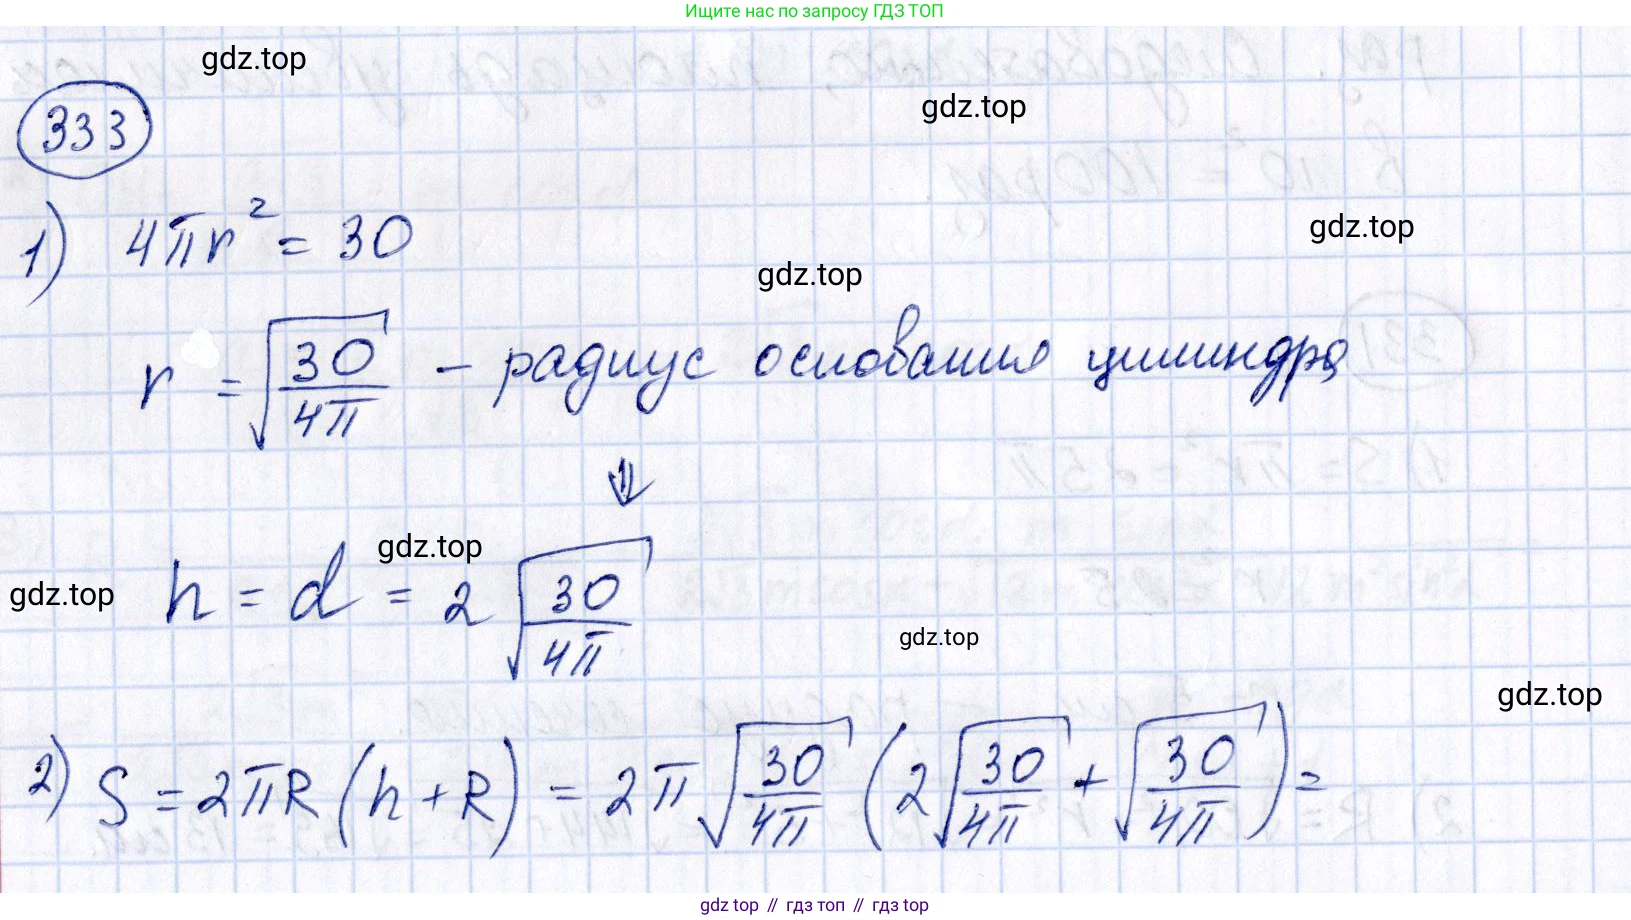 Ищите нас по запросу ГДЗ ТОП
gdz.top
gdz.top
333
1) 4πr² = 30
gdz.top
gdz.top
r = √(30/4π) – радиус основания цилиндра
⇓
gdz.top
gdz.top
h = d = 2√(30/4π)
gdz.top
gdz.top
2) S = 2πR(h + R) = 2π√(30/4π)(2√(30/4π) + √(30/4π)) =
gdz top // гдз топ // гдз top